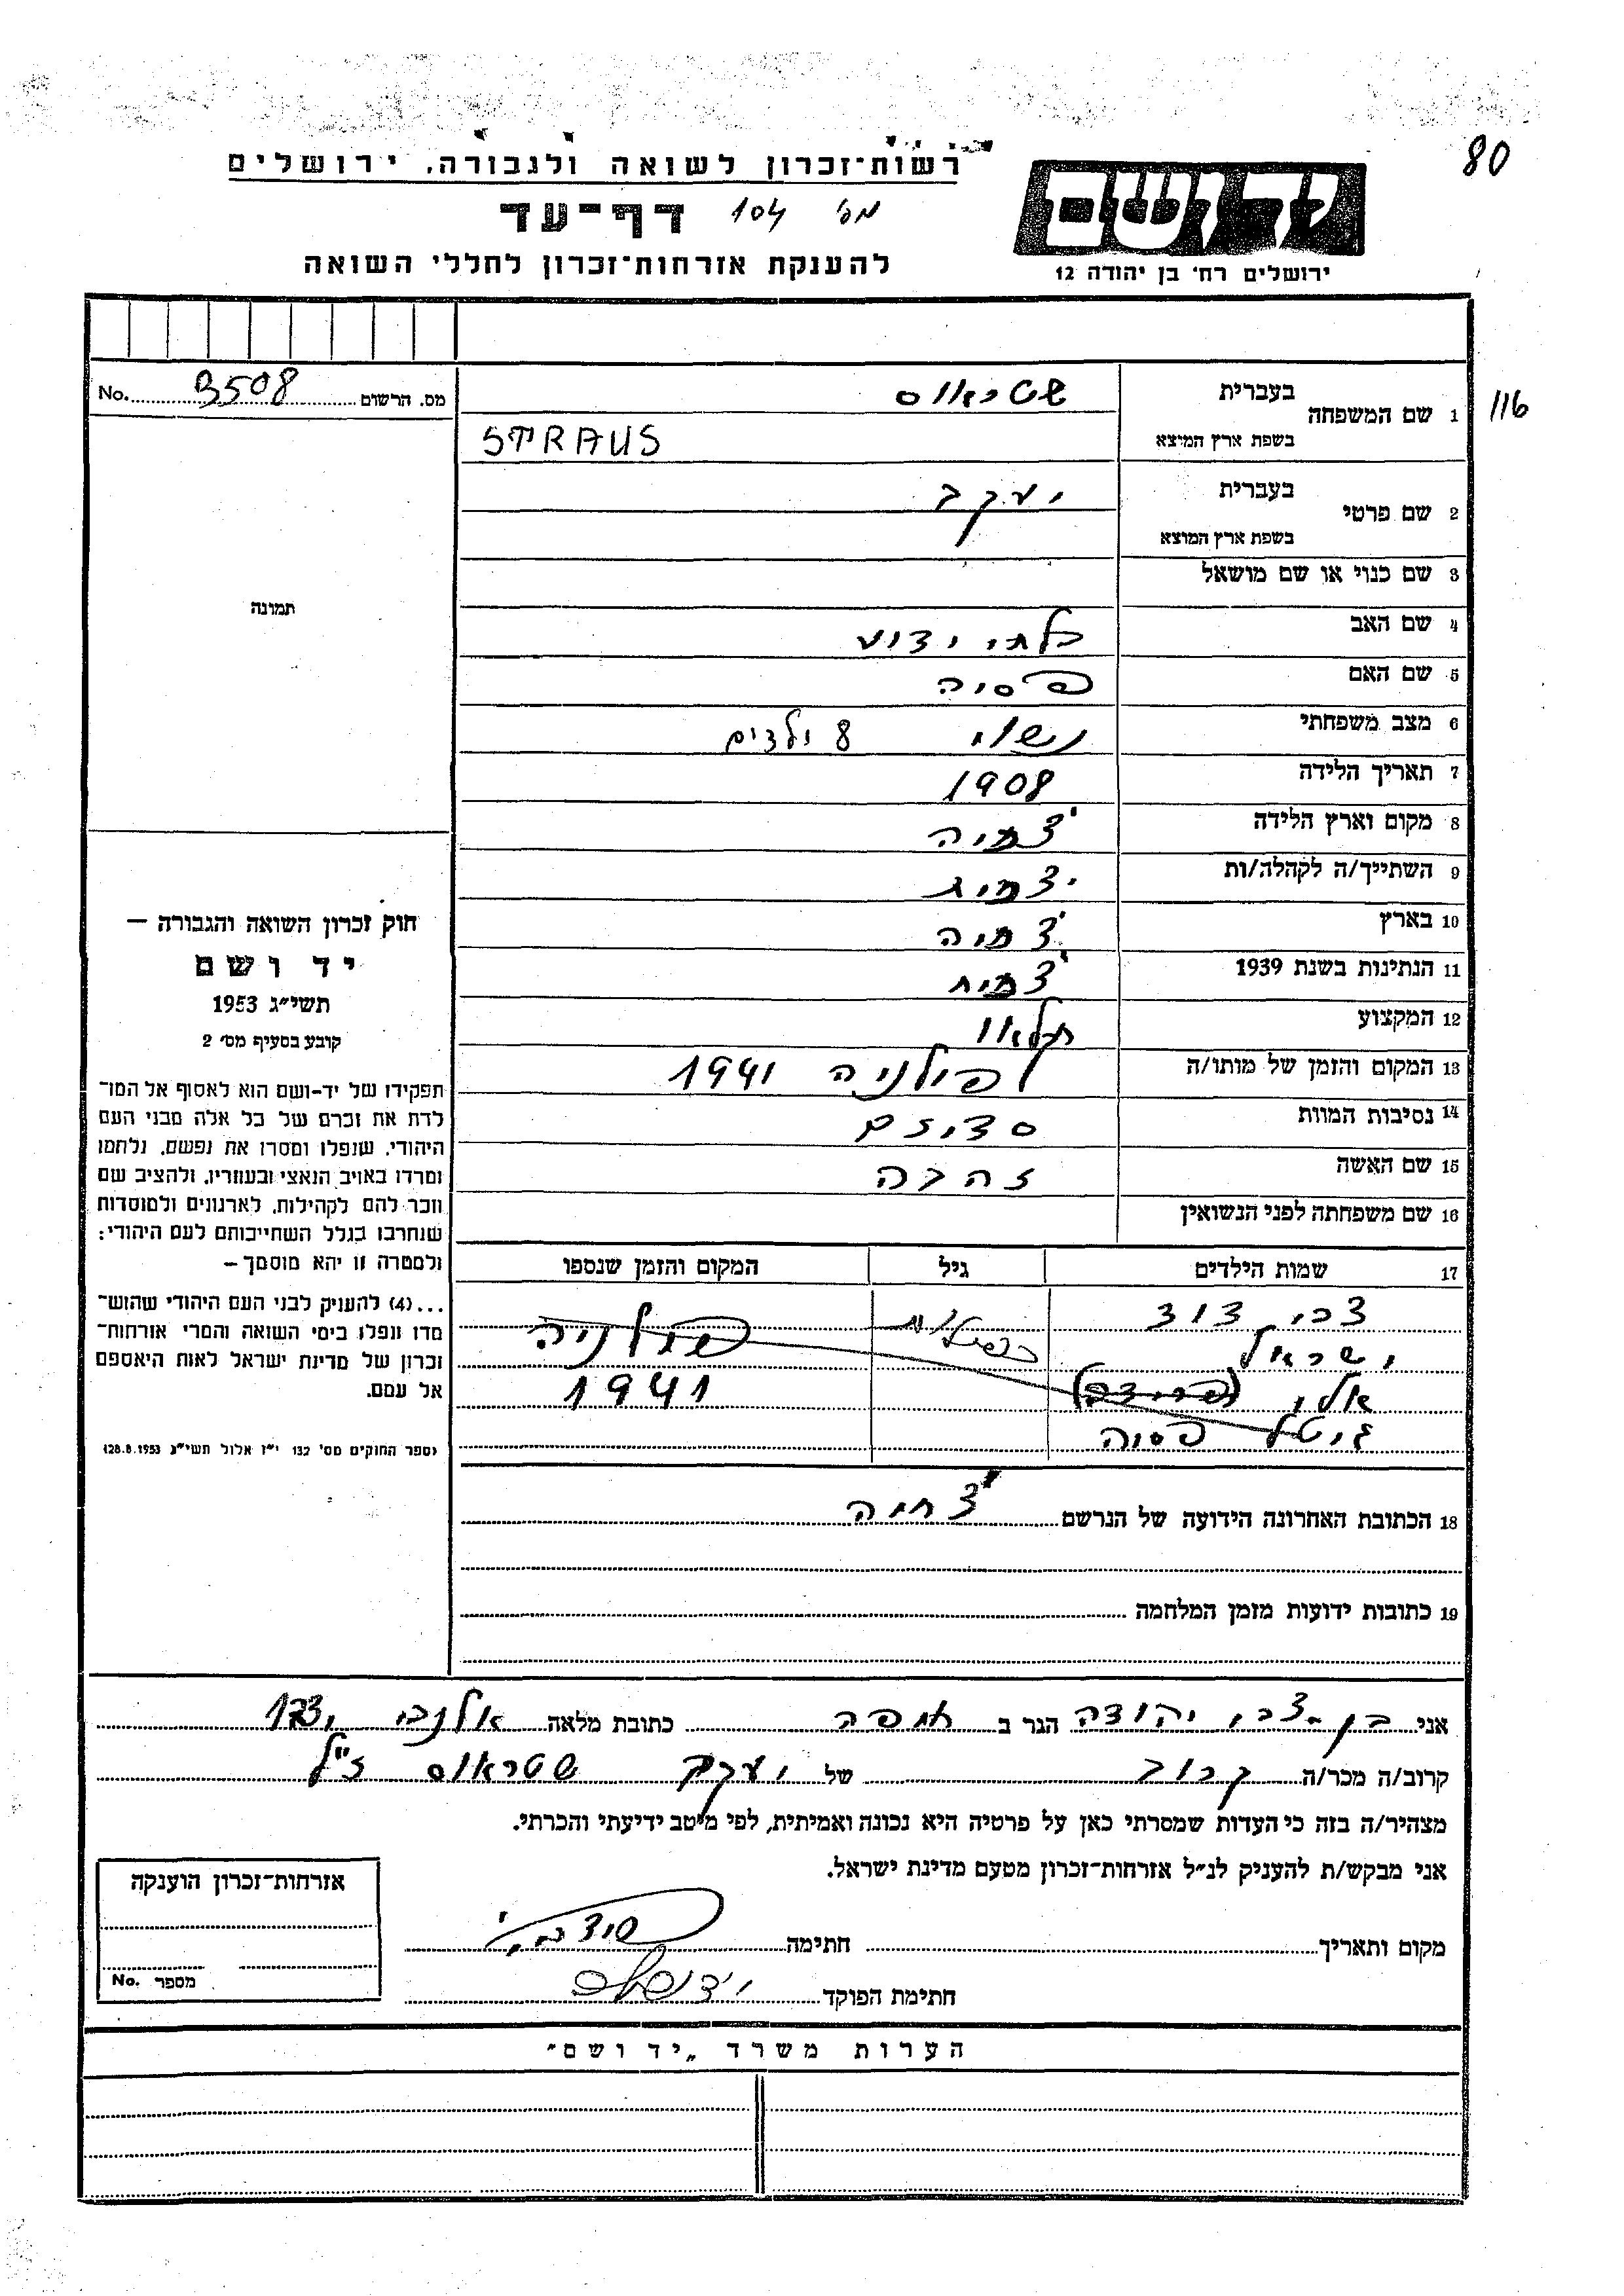 80
רשות־זכרון לשואה ולגבורה, ירושלים
ידושם
דף־עד
מס׳ 104
להענקת אזרחות־זכרון לחללי השואה
ירושלים רח׳ בן יהודה 12
116
מס. הרשום 3508 No.
1 שם המשפחה
בעברית שטראוס
בשפת ארץ המוצא STRAUS
2 שם פרטי
בעברית יעקב
בשפת ארץ המוצא
3 שם כנוי או שם מושאל
4 שם האב בלתי ידוע
5 שם האם פסיה
6 מצב משפחתי נשוי 8 ילדים
7 תאריך הלידה 1908
8 מקום וארץ הלידה צ׳כיה
9 השתייך/ה לקהלה/ות
10 בארץ צ׳כיה
11 הנתינות בשנת 1939
12 המקצוע חקלאי
13 המקום והזמן של מותו/ה פולניה 1941
14 נסיבות המוות
15 שם האשה זהבה
16 שם משפחתה לפני הנשואין
17 שמות הילדים גיל המקום והזמן שנספו
צבי דוד פולניה
ישראל
אלי (פרידה) 1941
גיטל פסיה
18 הכתובת האחרונה הידועה של הנרשם צ׳כיה
19 כתובות ידועות מזמן המלחמה
תמונה
חוק זכרון השואה והגבורה –
יד ושם
תשי״ג 1953
קובע בסעיף מס׳ 2
תפקידו של יד־ושם הוא לאסוף אל המו־
לדת את זכרם של כל אלה מבני העם
היהודי, שנפלו ומסרו את נפשם, נלחמו
ומרדו באויב הנאצי ובעוזריו, ולהציב שם
וזכר להם לקהילות, לארגונים ולמוסדות
שנחרבו בגלל השתייכותם לעם היהודי;
ולמטרה זו יהא מוסמך –
...(4) להעניק לבני העם היהודי שהוש־
מדו ונפלו בימי השואה והמרי אזרחות־
זכרון של מדינת ישראל לאות היאספם
אל עמם.
(ספר החוקים מס׳ 132 י״ז אלול תשי״ג 28.8.1953)
אני בן צבי יהודה הגר ב חיפה כתובת מלאה אלנבי 123
קרוב/ה מכר/ה קרוב של יעקב שטראוס ז״ל
מצהיר/ה בזה כי העדות שמסרתי כאן על פרטיה היא נכונה ואמיתית, לפי מיטב ידיעתי והכרתי.
אני מבקש/ת להעניק לנ״ל אזרחות־זכרון מטעם מדינת ישראל.
מקום ותאריך חתימה
חתימת הפוקד
אזרחות־זכרון הוענקה
מספר No.
הערות משרד „יד ושם״